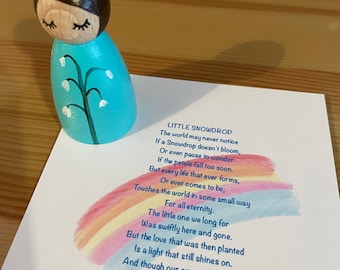 LITTLE SNOWDROP
The world may never notice
If a Snowdrop doesn't bloom,
Or even pause to wonder
If the petals fall too soon.
But every life that ever forms,
Or ever comes to be,
Touches the world in some small way
For all eternity.
The little one we long for
Was swiftly here and gone.
But the love that was then planted
Is a light that still shines on.
And though our